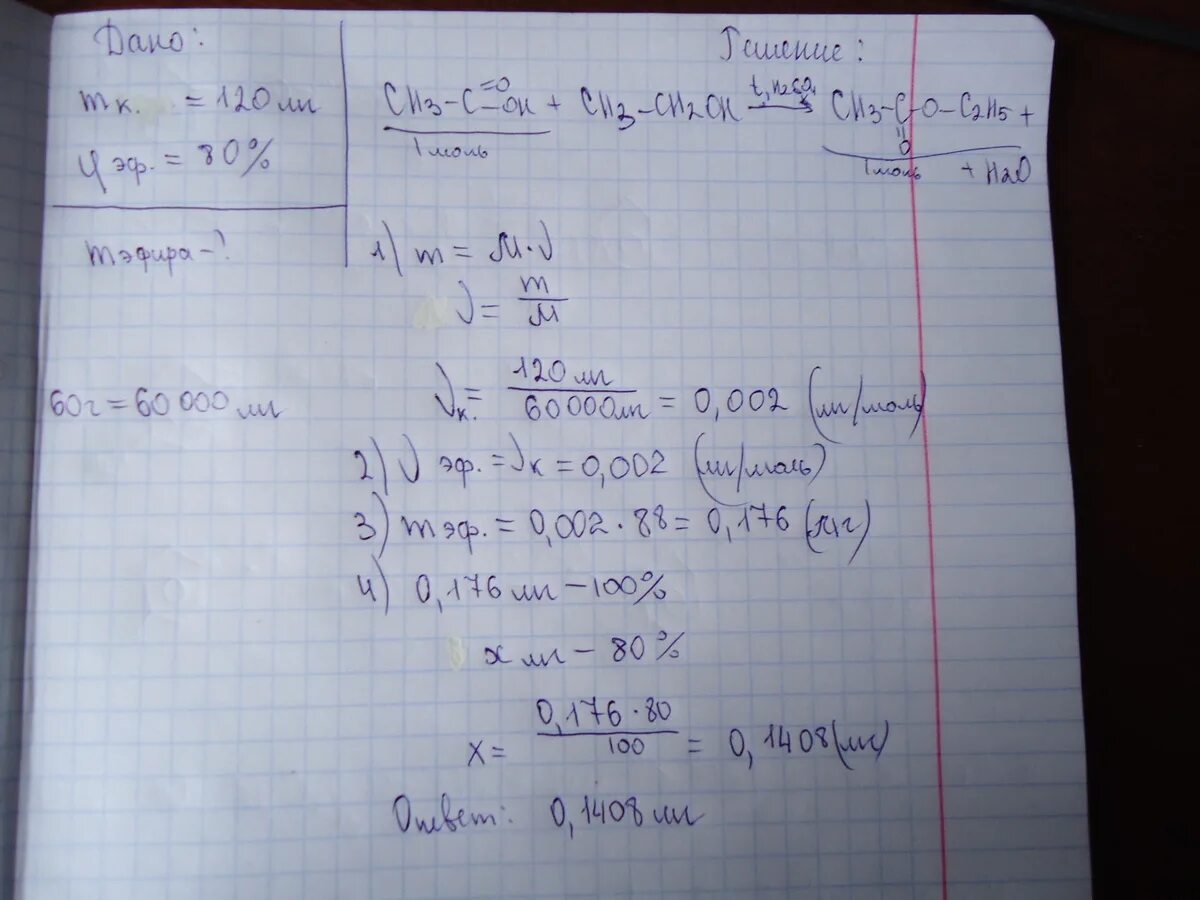 Дано:
mк. = 120 мг
η эф. = 80%
m эфира - ?
60г = 60 000 мг
Решение:
CH3-C=O-OH + CH3-CH2OH t, H2SO4 → CH3-C-O-C2H5 +
O
1 моль
1 моль + H2O
1) m = M·ν
ν = m/M
νк. = 120 мг/60000мг = 0,002 (мг/моль)
2) ν эф. = νк = 0,002 (мг/моль)
3) m эф. = 0,002 · 88 = 0,176 (мг)
4) 0,176 мг - 100%
x мг - 80%
x = 0,176 · 80/100 = 0,1408 (мг)
Ответ: 0,1408 мг